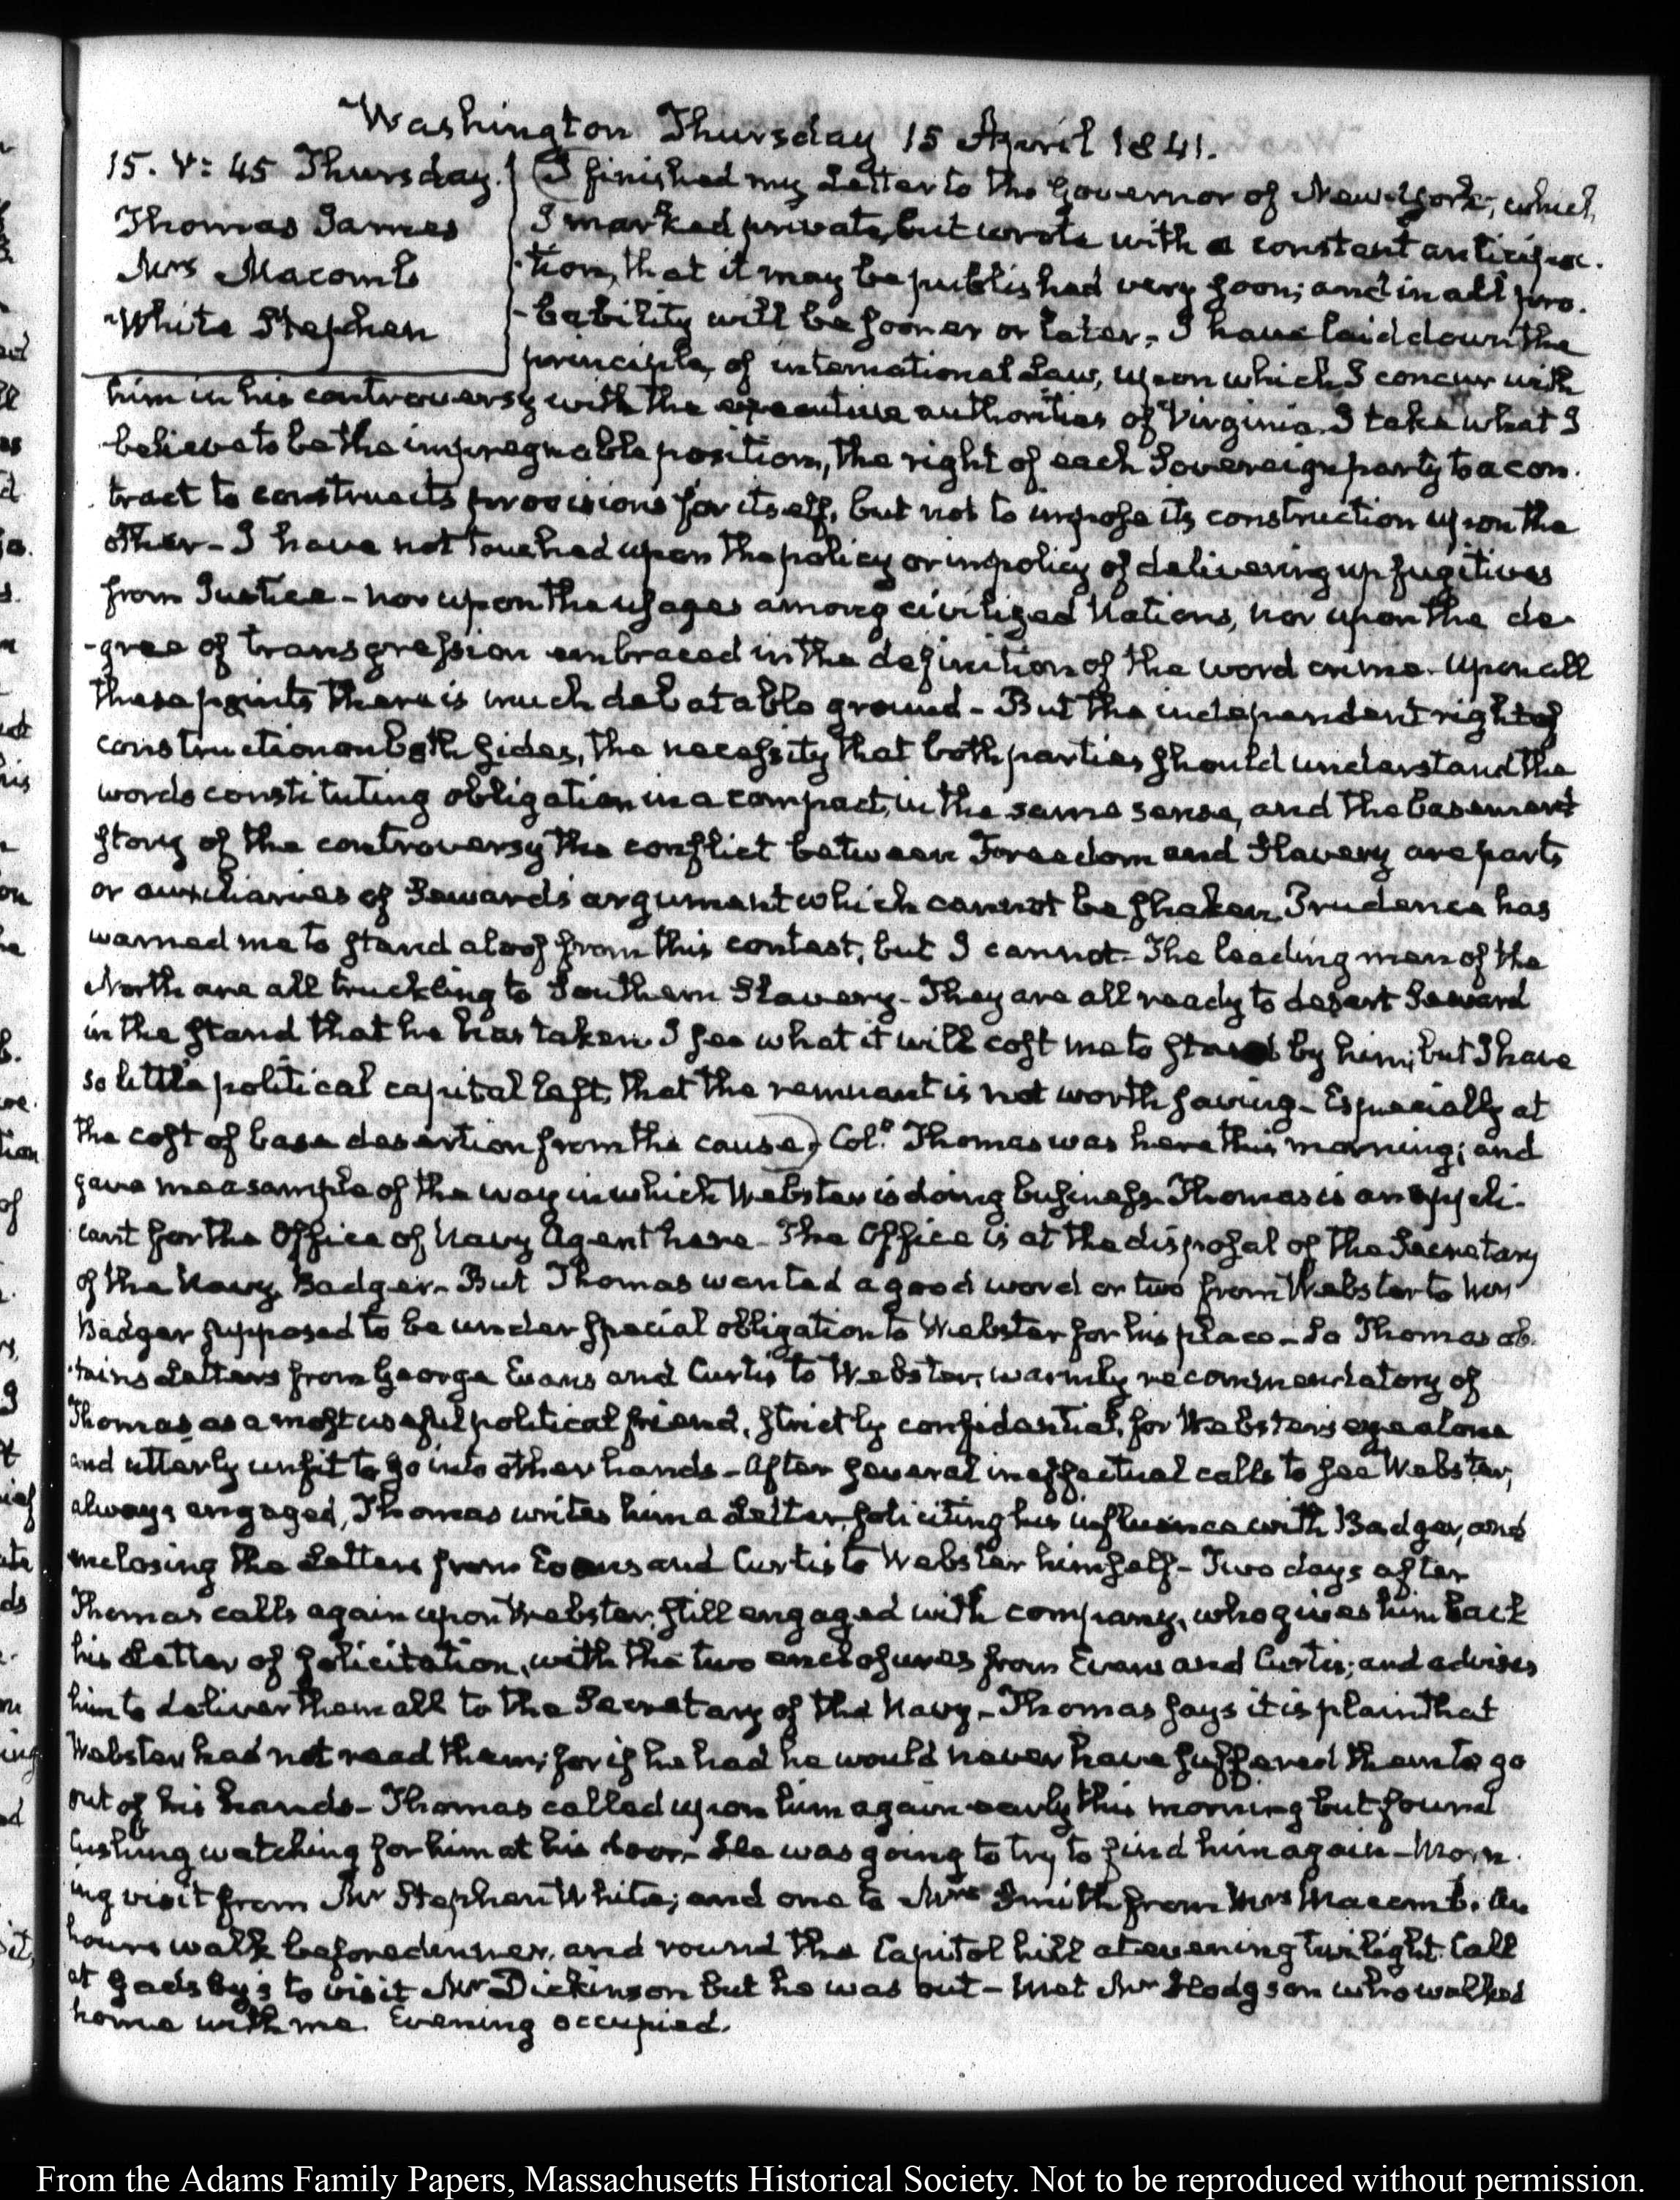 Washington Thursday 15 April 1841.
15. V: 45 Thursday.
Thomas James
Mrs Macomb
White Stephen
I finished my Letter to the Governor of New-York, which
I marked private, but wrote with a constant anticipa-
-tion, that it may be published very soon; and in all pro-
-bability will be sooner or later. I have laid down the
principle, of international Law, upon which I concur with
him in his controversy with the executive authorities of Virginia. I take what I
believe to be the impregnable position, the right of each Sovereign party to a con-
tract to construe its provisions for itself, but not to impose its construction upon the
other - I have not touched upon the policy or impolicy of delivering up fugitives
from Justice - nor upon the usages among civilized Nations, nor upon the de-
-gree of transgression embraced in the definition of the word crime. Upon all
these points there is much debatable ground - But the independent right of
construction on both sides, the necessity that both parties should understand the
words constituting obligation in a compact, in the same sense, and the basement
story of the controversy the conflict between Freedom and Slavery are parts
or auxiliaries of Seward's argument which cannot be shaken. Prudence has
warned me to stand aloof from this contest, but I cannot - The leading men of the
North are all truckling to Southern Slavery - They are all ready to desert Seward
in the stand that he has taken. I see what it will cost me to stand by him; but I have
so little political capital left, that the remnant is not worth saving - Especially at
the cost of base desertion from the cause) Col.o Thomas was here this morning; and
gave me a sample of the way in which Webster is doing business. Thomas is an appli-
cant for the Office of Navy Agent here - The Office is at the disposal of the Secretary
of the Navy, Badger - But Thomas wanted a good word or two from Webster to him
Badger supposed to be under special obligation to Webster for his place - So Thomas ob-
-tains Letters from George Evans and Curtis to Webster, warmly recommendatory of
Thomas as a most useful political friend, strictly confidential, for Webster's eye alone
and utterly unfit to go into other hands - After several ineffectual calls to see Webster,
always engaged, Thomas writes him a Letter, soliciting his influence with Badger, and
inclosing the Letters from Evans and Curtis to Webster himself - Two days after
Thomas calls again upon Webster, still engaged with company, who gives him back
his Letter of solicitation, with the two enclosures from Evans and Curtis; and advises
him to deliver them all to the Secretary of the Navy - Thomas says it is plain that
Webster had not read them; for if he had he would never have suffered them to go
out of his hands - Thomas called upon him again early this morning but found
Cushing watching for him at his door - He was going to try to find him again - Morn-
ing visit from Mr Stephen White; and one to Mrs Smith from Mrs Macomb. An
hour's walk before dinner, and round the Capitol hill at evening twilight. Call
at Gadsby's to visit Mr Dickinson but he was out - Met Mr Hodgson who walked
home with me. Evening occupied.
From the Adams Family Papers, Massachusetts Historical Society. Not to be reproduced without permission.